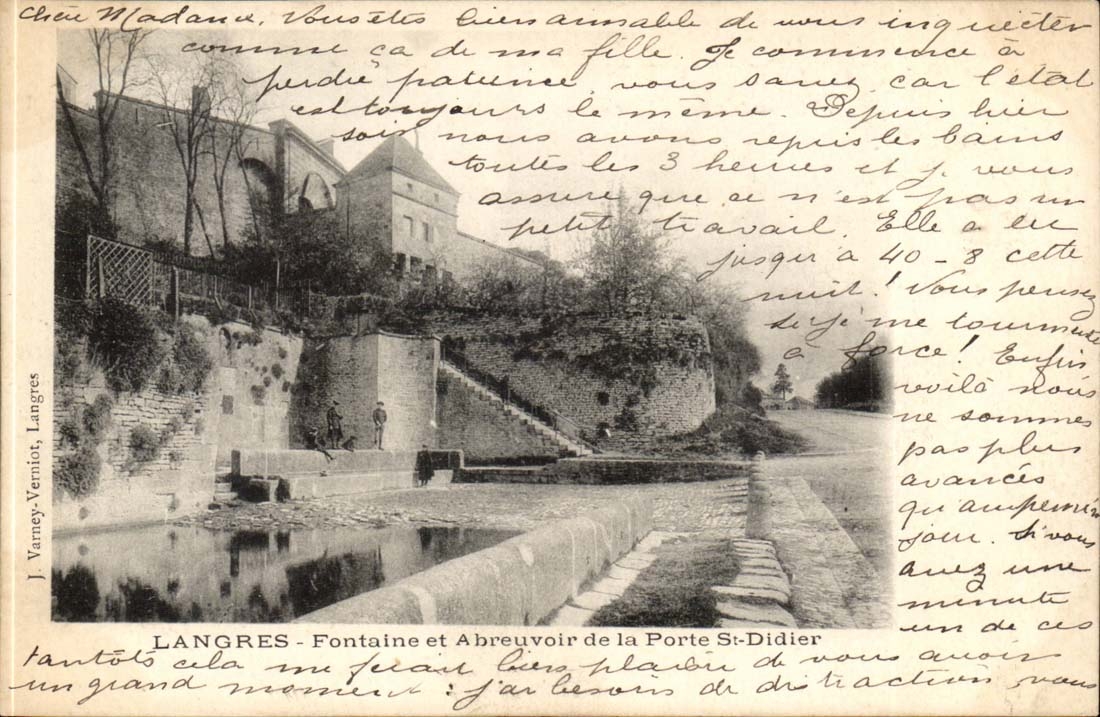 Chère Madame, Vous êtes bien aimable de vous inquiéter
comme ça de ma fille. Je commence à
perdre patience, vous savez, car l'état
est toujours le même. Depuis hier
soir nous avons repris les bains
toutes les 3 heures et je vous
assure que ce n'est pas un
petit travail. Elle a eu
jusqu'à 40-8 cette
nuit! Vous pensez
si je me tourmente
à force! Enfin
voilà nous
ne sommes
pas plus
avancés
qu'au premier
jour. Si vous
avez une
minute
un de ces
tantôts cela me ferait bien plaisir de vous avoir
un grand moment: j'ai besoin de distraction, vous
J. Varney-Verniot, Langres
LANGRES - Fontaine et Abreuvoir de la Porte St-Didier